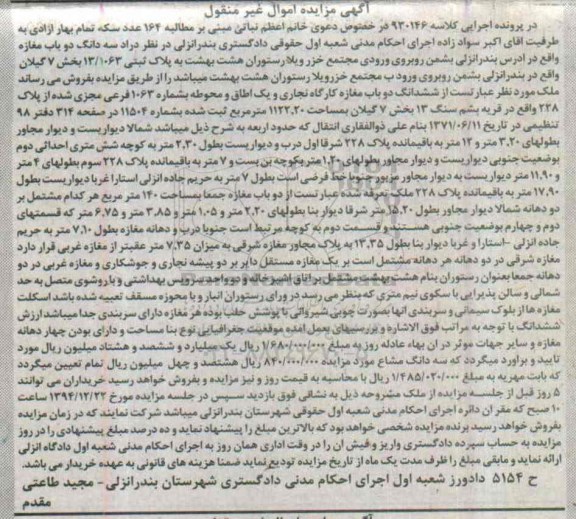 آگهی مزایده اموال غیر منقول
در پرونده اجرایی کلاسه ۹۳۰۱۴۶ در خصوص دعوی خانم اعظم نباتی مبنی بر مطالبه ۱۶۴ عدد سکه تمام بهار آزادی به
ظرفیت آقای اکبر سواد زاده اجرای احکام مدنی شعبه اول حقوقی دادگستری بندرانزلی در نظر دراد سه دانگ دو باب مغازه
واقع در آدرس بندرانزلی بشمن روبروی ورودی مجتمع خزر ویلا رستوران هشت بهشت به پلاک ثبتی ۱۳/۰۶۳ بخش ۷ گیلان
واقع در بندرانزلی بشمن روبروی ورود ب مجتمع خزرویلا رستوران هشت بهشت میباشد را از طریق مزایده بفروش می رساند
ملک مورد نظر عبارتست از ششدانگ دو باب مغازه کارگاه نجاری و یک اطاق و محوطه بشماره ۱۰۶۳ فرعی مجزی شده از پلاک
۲۲۸ واقع در قریه بشم سنگ ۱۳ بخش ۷ گیلان بمساحت ۱۱۲۲.۲۰ مترمربع ثبت شده بشماره ۱۱۵۰۴ در صفحه ۳۱۴ دفتر ۹۸
تنظیمی در تاریخ ۱۳۷۱/۰۶/۱۱ بنام علی ذوالفقاری انتقال که حدود اربعه به شرح ذیل میباشد شمالا دیواریست و دیوار مجاور
بطولهای ۳.۲۰ متر و ۱۲ متر به باقیمانده پلاک ۲۲۸ شرقا اول درب و دیواریست بطول ۲.۳۰ متر به کوچه شش متری احداثی دوم
بوضعیت جنوبی دیواریست و دیوار مجاور بطولهای ۱.۲۰ متر بکوچه بن بست و ۷ متر به باقیمانده پلاک ۲۲۸ سوم بطولهای ۴ متر
و ۱۱.۹۰ متر دیواریست به دیوار مجاور مزبور جنوبا خط فرضی است بطول ۷ متر به حریم جاده انزلی استارا غربا دیواریست بطول
۱۷.۹۰ متر به باقیمانده پلاک ۲۲۸ ملک تعرفه شده عبارتست از دو باب مغازه جمعا بمساحت ۱۴۰ متر مربع هر کدام مشتمل بر
دو دهانه شمالا دیوار مجاور بطول ۱۵.۲۰ متر شرقا دیوار بنا بطولهای ۲.۲۰ متر و ۱.۰۵ متر و ۳.۸۵ متر و ۶.۷۵ متر که قسمتهای
دوم و چهارم بوضعیت جنوبی هستند و قسمت دوم به کوچه مرتبط است جنوبا درب و دهانه مغازه بطول ۷.۱۰ متر به حریم
جاده انزلی -استارا و غربا دیوار بنا بطول ۱۳.۳۵ به پلاک مجاور مغازه شرقی به میزان ۷.۳۵ متر عقبتر از مغازه غربی قرار دارد
مغازه شرقی در دو دهانه هر دهانه مشتمل است بر یک مغازه مستقل دایر بر دو پیشه نجاری و جوشکاری و مغازه غربی در دو
دهانه جمعا بعنوان رستوران بنام هشت بهشت مشتمل بر اتاق آشپزخانه و دو واحد سرویس بهداشتی و با روشوی متصل به حد
شمالی و سالن پذیرایی با سکوی نیم متری که بنظر می رسد در ورای رستوران انبار و یا مخروبه مسقف تعبیه شده باشد اسکلت
مغازه ها از بلوک سیمانی و سربندی آنها بصورت چوبی شیروانی با پوشش حلب بوده هر مغازه دارای سربندی جدا میباشد ارزش
ششدانگ با توجه به مراتب فوق الاشاره و بررسیهای بعمل آمده موقعیت جغرافیایی نوع بنا مساحت و دارای بودن چهار دهانه
مغازه و سایر جهات موثر در آن بهاء عادله روز به مبلغ ۱/۶۸۰/۰۰۰/۰۰۰ ریال یک میلیارد و ششصد و هشتاد میلیون ریال مورد
تایید و براورد میگردد که سه دانگ مشاع مورد مزایده ۸۴۰/۰۰۰/۰۰۰ ریال هشتصد و چهل میلیون ریال تمام تعیین میگردد
که بابت مهریه به مبلغ ۱/۴۸۵/۰۲۰/۰۰۰ ریال با محاسبه به قیمت روز و نیز مزایده و بفروش خواهد رسید خریداران می توانند
۵ روز قبل از جلسه مزایده از ملک مشروحه ذیل به نشانی فوق بازدید سپس در جلسه مزایده مورخ ۱۳۹۴/۱۲/۲۲ ساعت
۱۰ صبح که مقر آن دائره اجرای احکام مدنی شعبه اول حقوقی شهرستان بندرانزلی میباشد شرکت نمایند که در زمان مزایده
بفروش خواهد رسید برنده مزایده شخصی خواهد بود که بالاترین مبلغ را پیشنهاد نماید و ده درصد مبلغ پیشنهادی را در روز
مزایده به حساب سپرده دادگستری واریز و فیش آن را در وقت اداری همان روز به اجرای احکام مدنی شعبه اول دادگاه انزلی
ارائه نماید و مابقی مبلغ را ظرف مدت یک ماه از تاریخ مزایده تودیع نماید ضمنا هزینه های قانونی به عهده خریدار می باشد.
ح ۵۱۵۴ دادورز شعبه اول اجرای احکام مدنی دادگستری شهرستان بندرانزلی - مجید طاعتی
مقدم